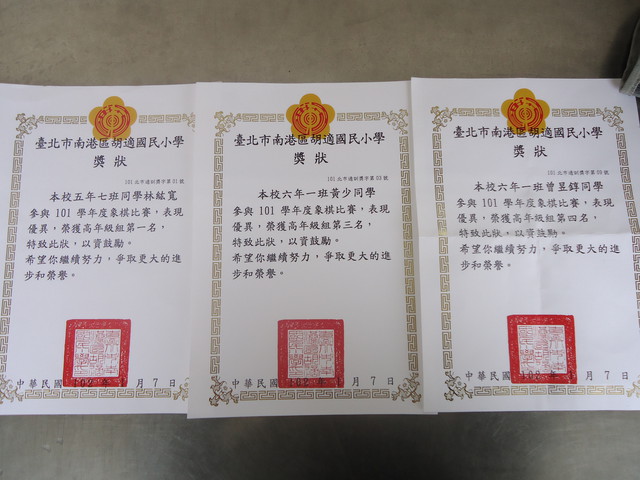 臺北市南港區胡適國民小學
獎狀
101 北市適訓獎字第 01 號
本校五年七班同學林紘寬
參與 101 學年度象棋比賽，表現
優異，榮獲高年級組第一名，
特致此狀，以資鼓勵。
希望你繼續努力，爭取更大的進
步和榮譽。
中華民國 102 年 1 月 7 日
臺北市南港區胡適國民小學
獎狀
101 北市適訓獎字第 03 號
本校六年一班黃少同學
參與 101 學年度象棋比賽，表現
優異，榮獲高年級組第三名，
特致此狀，以資鼓勵。
希望你繼續努力，爭取更大的進
步和榮譽。
中華民國 102 年 1 月 7 日
臺北市南港區胡適國民小學
獎狀
101 北市適訓獎字第 05 號
本校六年一班曾昱錞同學
參與 101 學年度象棋比賽，表現
優異，榮獲高年級組第四名，
特致此狀，以資鼓勵。
希望你繼續努力，爭取更大的進
步和榮譽。
中華民國 102 年 1 月 7 日